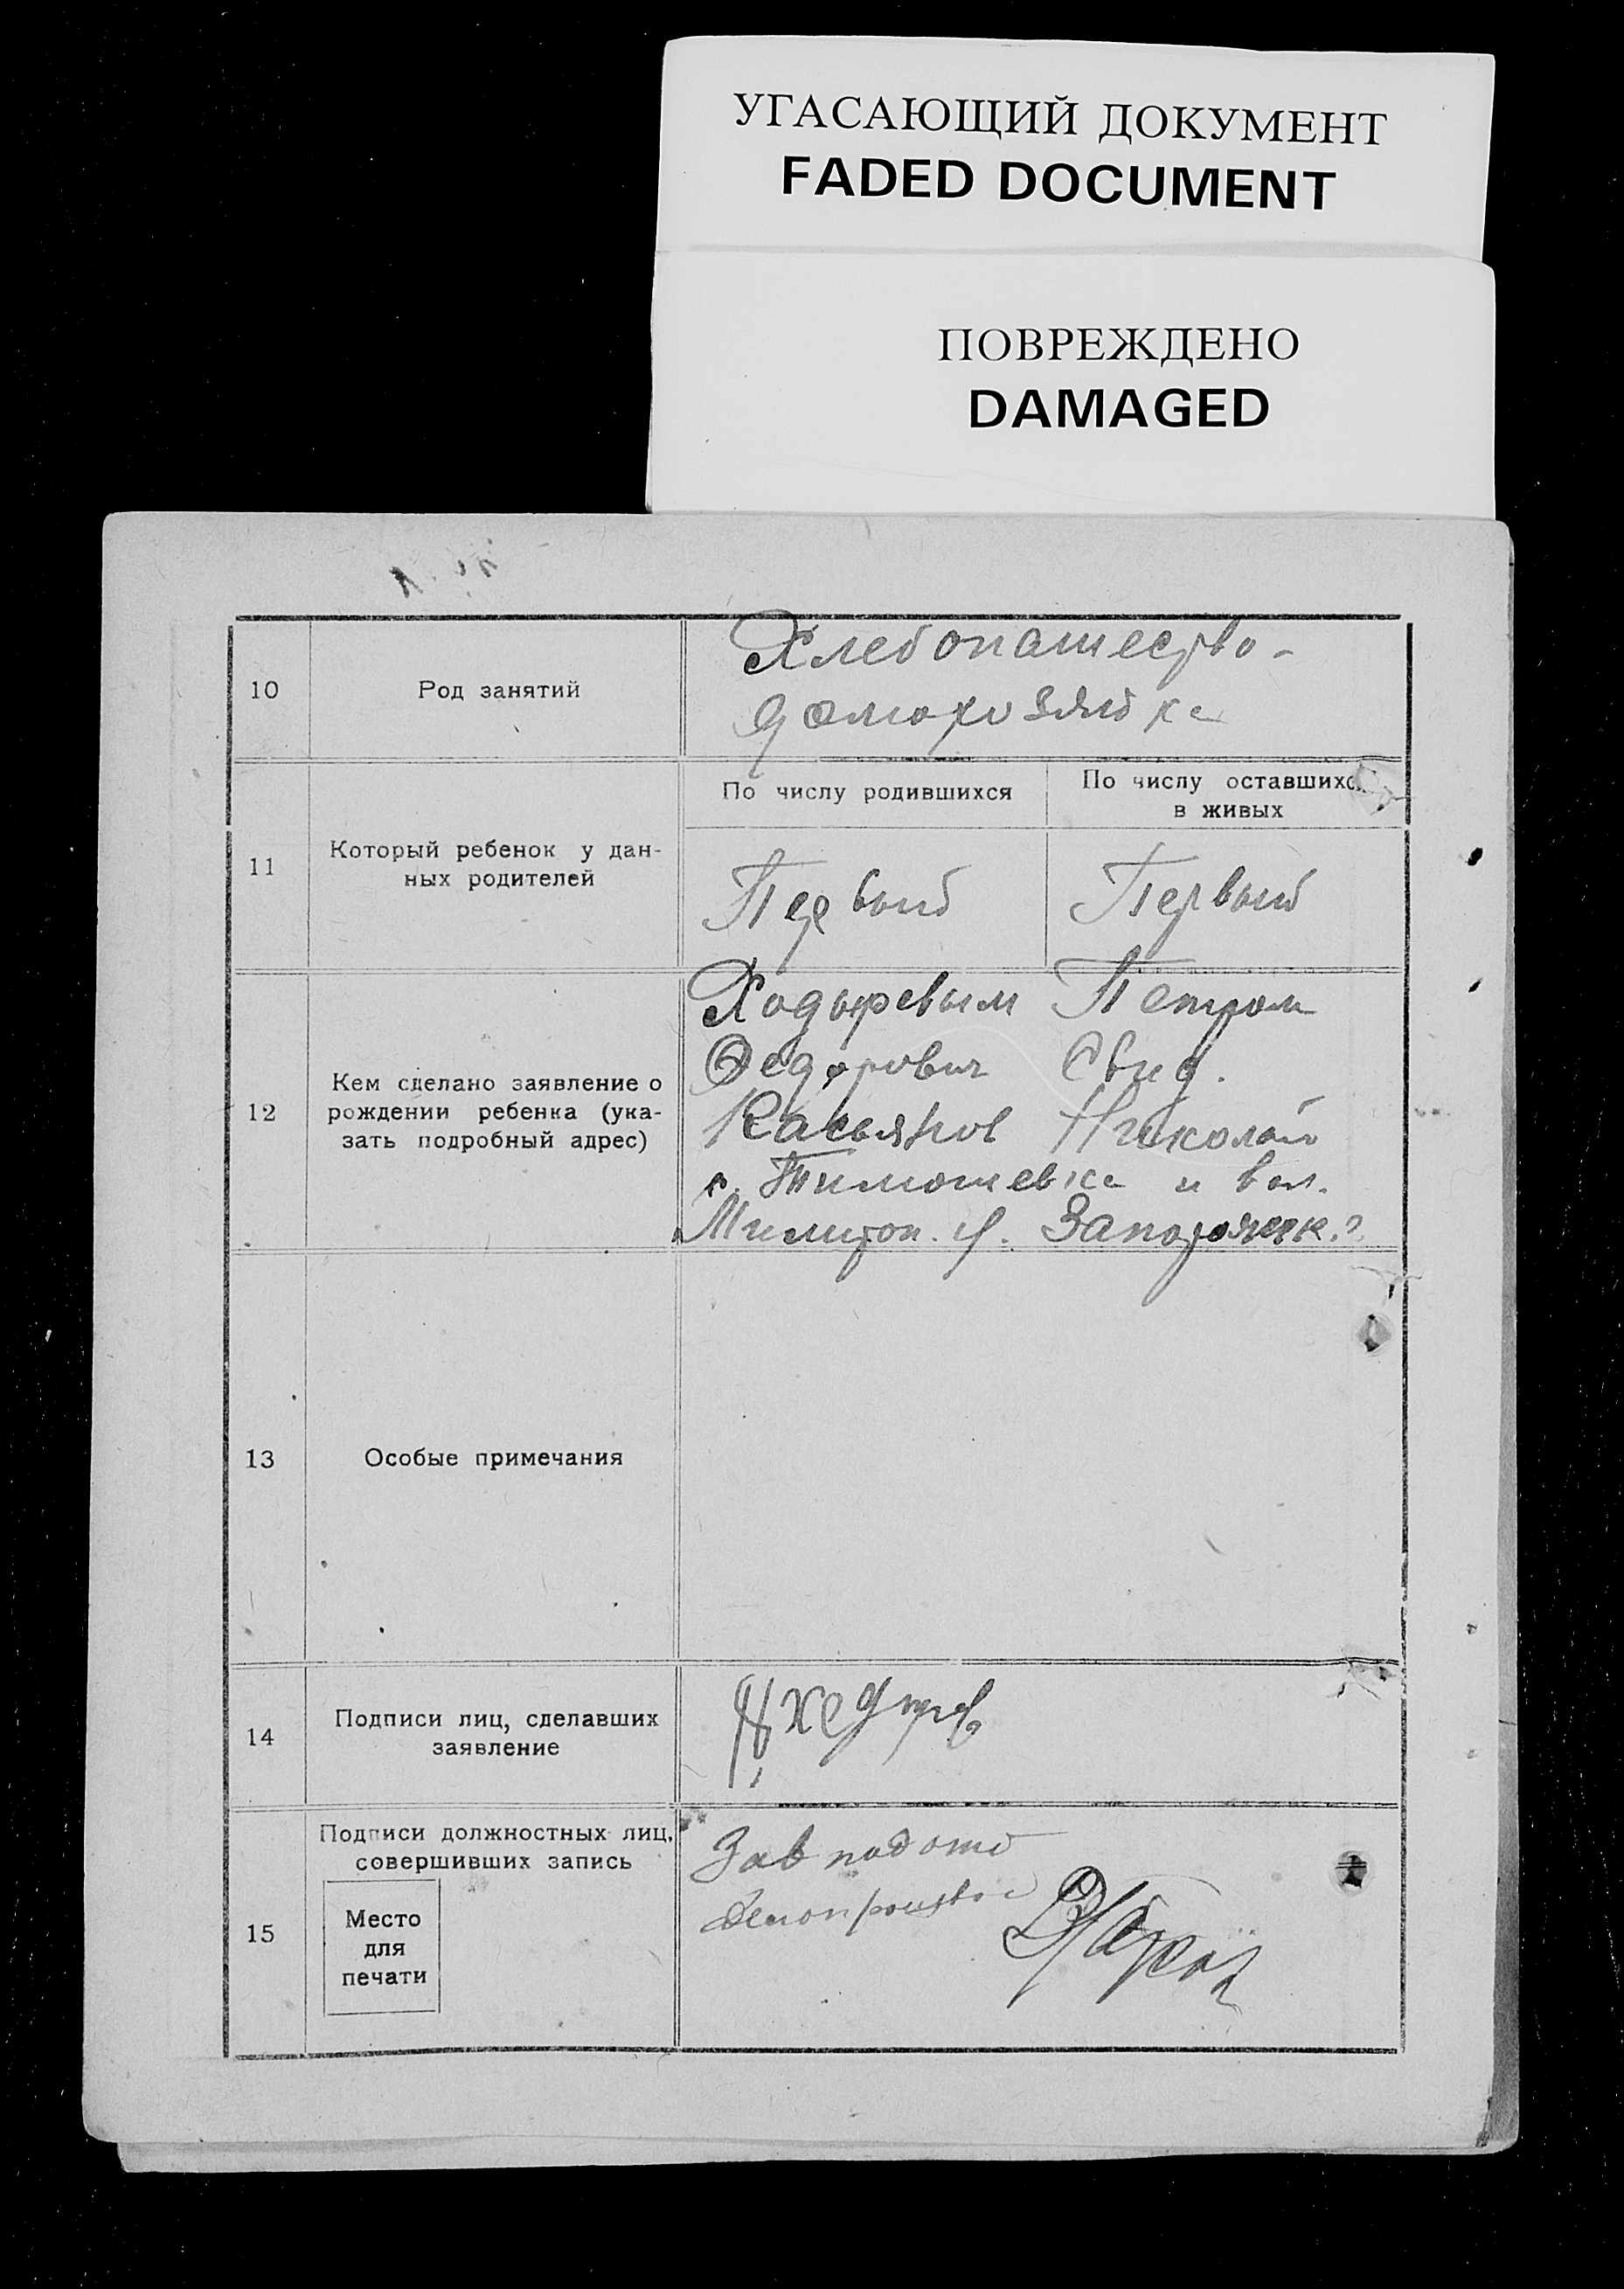 УГАСАЮЩИЙ ДОКУМЕНТ
FADED DOCUMENT
ПОВРЕЖДЕНО
DAMAGED
10
Род занятий
Хлебопашество -
домохозяйка
11
Который ребенок у дан-
ных родителей
По числу родившихся
По числу оставшихся
в живых
Первый
Первый
12
Кем сделано заявление о
рождении ребенка (ука-
зать подробный адрес)
Ходыревым Петром
Федорович Свид.
Касьянов Николай
с. Тимошевка и вол.
Милитоп. у. Запорожск. г.
13
Особые примечания
14
Подписи лиц, сделавших
заявление
15
Подписи должностных лиц,
совершивших запись
Место
для
печати
Зав подотд